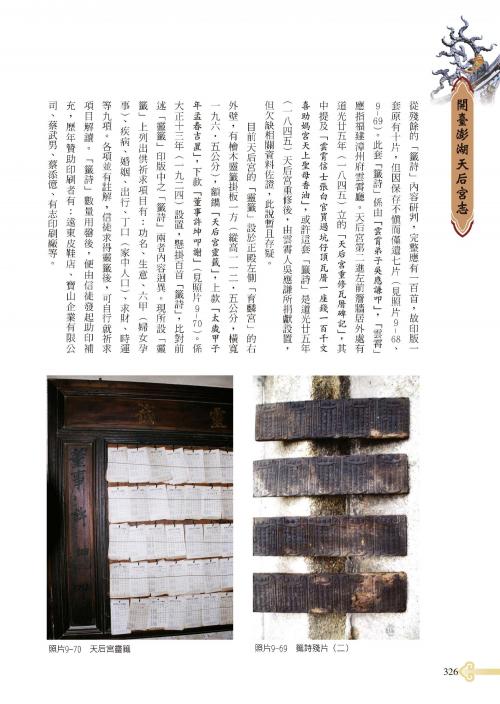 開臺澎湖天后宮志
從殘餘的「籤詩」內容研判，完整應有一百首，故印版一
套原有十片，但因保存不慎而僅遺七片（見照片9-68、
9-69）。此套「籤詩」係由「雲霄弟子吳應謙叩」，「雲霄」
應指福建漳州府雲霄廳。天后宮第二進左前簷牆居外處有
道光廿五年（一八四五）立的「天后宮重修瓦厝碑記」，其
中提及「雲霄信士張白宮買過坑行頂瓦厝一座錢一百千文
喜助媽宮天上聖母香油」，或許這套「籤詩」是道光廿五年
（一八四五）天后宮重修後，由雲霄人吳應謙所捐獻設置，
但欠缺相關資料佐證，此說暫且存疑。
目前天后宮的「靈籤」設於正殿左側「育麟宮」的右
外壁，有檜木靈籤掛板一方（縱高一一二．五公分，橫寬
一九六．五公分），額鐫「天后宮靈籤」，上款「太歲甲子
年孟春吉置」，下款「董事許坤叩謝」（見照片9-70）。係
大正十三年（一九二四）設置，懸掛百首「籤詩」，此對前
述「靈籤」印版中之「籤詩」兩者內容迥異。現所設「靈
籤」上列出供祈求項目有：功名、生意、六甲（婦女孕
事）、疾病、婚姻、出行、丁口（家中人口）、求財、時運
等九項。各項並有註解，信徒求得靈籤後，可自行就祈求
項目解讀。「籤詩」數量用罄後，便由信徒發起助印補
充，歷年贊助印刷者有：遠東皮鞋店、寶山企業有限公
司、蔡武男、蔡添億、有志印刷廠等。
靈籤
董事許坤
照片9-69　籤詩殘片（二）
照片9-70　天后宮靈籤
326